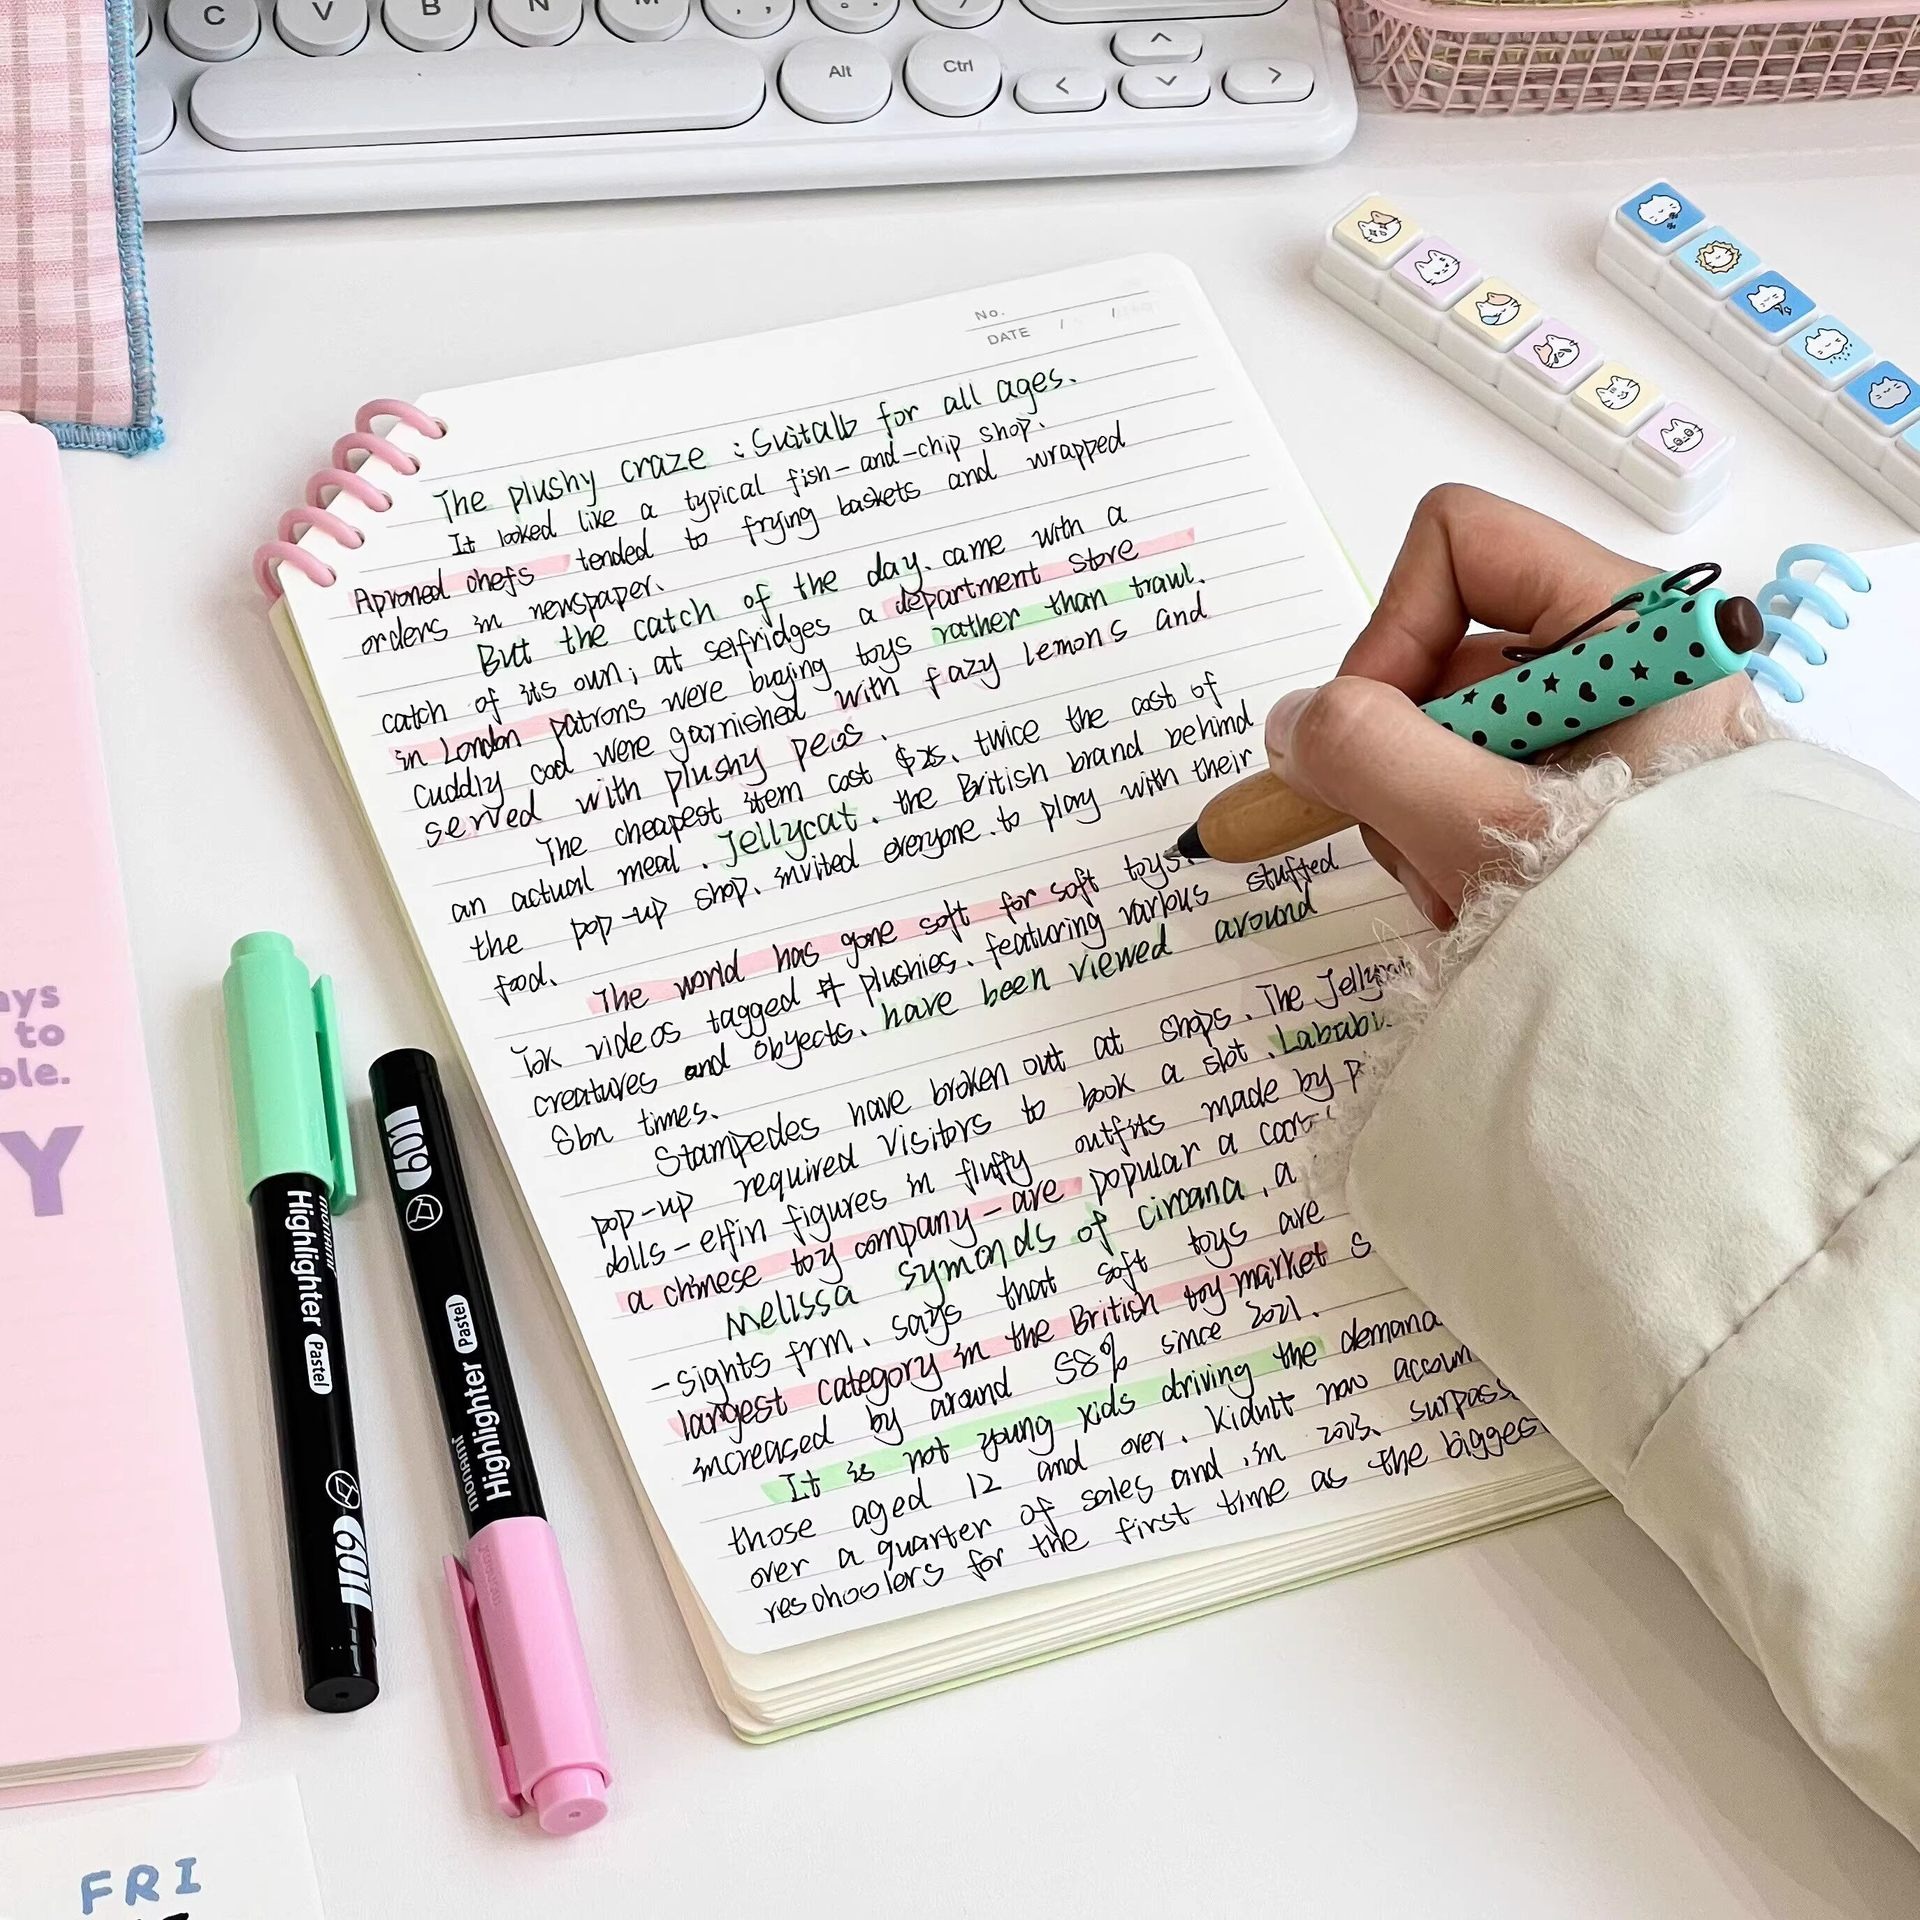 C V B N M
Alt Ctrl
No.
DATE / /
The plushy craze : Suitalb for all ages.
It looked like a typical fish-and-chip shop.
Aproned chefs tended to frying baskets and wrapped
orders in newspaper.
But the catch of the day. came with a
catch of its own; at selfridges a department store
in London patrons were buying toys rather than trawl.
cuddly cod were garnished with fazy lemons and
served with plushy peas.
The cheapest item cost $25. twice the cost of
an actual meal. Jellycat. the British brand behind
the pop-up shop. invited everyone. to play with their
food.
The world has gone soft for soft toys.
Tok videos tagged # plushies. featuring various stuffed
creatures and objects. have been viewed around
8bn times.
Stampedes have broken out at shops. The Jellycat
pop-up required visitors to book a slot. Lababu
dolls-elfin figures in fluffy outfits made by P
a chinese toy company-are popular a
Melissa symonds of circana, a
-sights frm. says that soft toys are
largest category in the British toy market s
increased by around 58% since 2021.
It is not young kids driving the demand
those aged 12 and over. kidult now accoun
over a quarter of sales and in 2023. surpass
reschoolers for the first time as the bigges
monami Highlighter Pastel 601
monami Highlighter Pastel 601
ays
to
ble.
Y
FRI